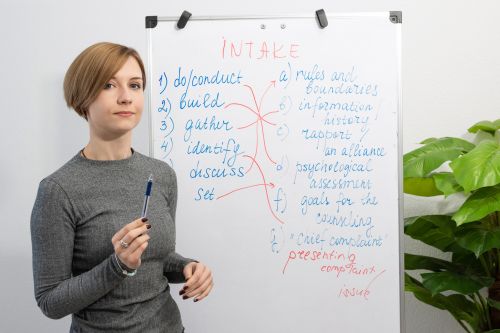 INTAKE
1) do/conduct
2) build
3) gather
4) identify
discuss
set
a) rules and
boundaries
b) information
history/
c) rapport/
an alliance
d) psychological
assessment
f) goals for the
counseling
g) "chief complaint"
presenting
complaint/
issue